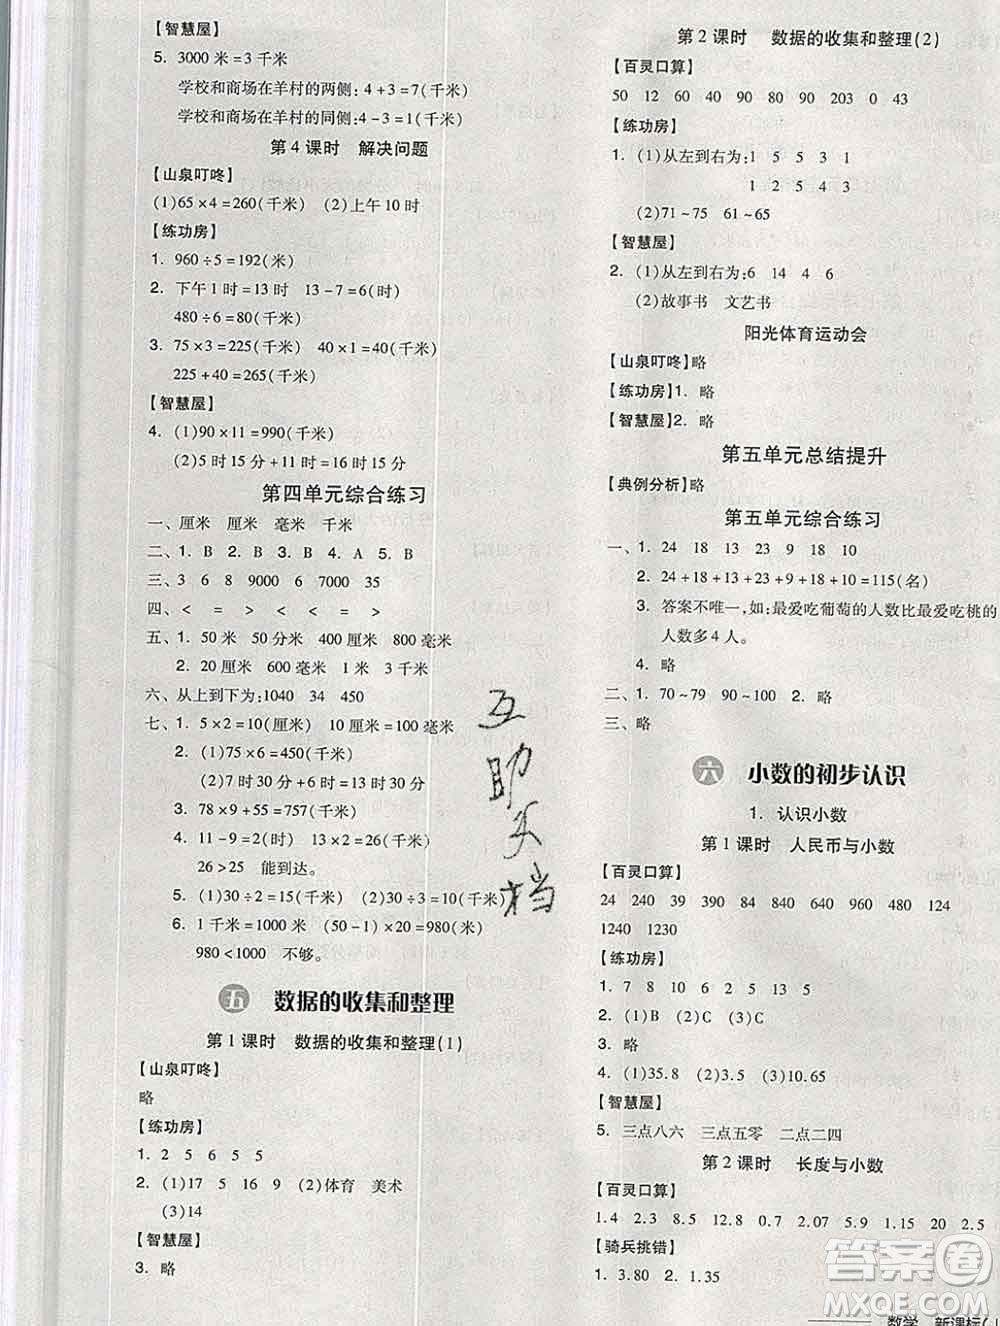 【智慧屋】
5. 3000 米=3 千米
学校和商场在羊村的两侧:4+3=7(千米)
学校和商场在羊村的同侧:4-3=1(千米)
第 4 课时 解决问题
【山泉叮咚】
(1)65×4=260(千米) (2)上午 10 时
【练功房】
1. 960÷5=192(米)
2. 下午 1 时=13 时 13-7=6(时)
480÷6=80(千米)
3. 75×3=225(千米) 40×1=40(千米)
225+40=265(千米)
【智慧屋】
4. (1)90×11=990(千米)
(2)5 时 15 分+11 时=16 时 15 分
第四单元综合练习
一、厘米 厘米 毫米 千米
二、1. B 2. B 3. B 4. A 5. B
三、3 6 8 9000 6 7000 35
四、< = > < > =
五、1. 50 米 50 分米 400 厘米 800 毫米
2. 20 厘米 600 毫米 1 米 3 千米
六、从上到下为:1040 34 450
七、1. 5×2=10(厘米) 10 厘米=100 毫米
2. (1)75×6=450(千米)
(2)7 时 30 分+6 时=13 时 30 分
3. 78×9+55=757(千米)
4. 11-9=2(时) 13×2=26(千米)
26>25 能到达。
5. (1)30÷2=15(千米) (2)30×3=90(千米)
6. 1 千米=1000 米 (50-1)×20=980(米)
980<1000 不够。
五 数据的收集和整理
第 1 课时 数据的收集和整理(1)
【山泉叮咚】
略
【练功房】
1. 2 5 6 5 5
2. (1)17 5 16 9 (2)体育 美术
(3)14
【智慧屋】
3. 略
第 2 课时 数据的收集和整理(2)
【百灵口算】
50 12 60 40 90 80 90 203 0 43
【练功房】
1. (1)从左到右为:1 5 5 3 1
1 2 5 4 3
(2)71~75 61~65
【智慧屋】
2. (1)从左到右为:6 14 4 6
(2)故事书 文艺书
阳光体育运动会
【山泉叮咚】略
【练功房】1. 略
【智慧屋】2. 略
第五单元总结提升
【典例分析】略
第五单元综合练习
一、1. 24 18 13 23 9 18 10
2. 24+18+13+23+9+18+10=115(名)
3. 答案不唯一,如:最爱吃葡萄的人数比最爱吃桃的
人数多 4 人。
4. 略
二、1. 70~79 90~100 2. 略
三、略
六 小数的初步认识
1. 认识小数
第 1 课时 人民币与小数
【百灵口算】
24 240 39 390 84 840 48 480 124
1240 1230
【练功房】
1. 7 8 10 5 13 5 12 5
2. (1)B (2)C (3)C
3. 略
4. (1)35.8 (2)2.94 (3)10.65
【智慧屋】
5. 三点八六 三点五零 二点二四
第 2 课时 长度与小数
【百灵口算】
1.4 2.3 8.5 12.8 0.7 2.07 5.09 45 20 2.5
【骑兵挑错】
1. 3.80 2. 1.35
互
助
文
档
答案圈
MXQE.COM
数学 新课标(